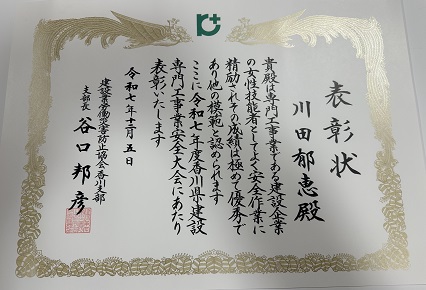 表彰状
川田郁恵殿
貴殿は専門工事業である建設企業
の女性技能者としてよく安全作業に
精励されその成績は極めて優秀で
あり他の模範と認められます
ここに令和七年度香川県建設
専門工事業安全大会にあたり
表彰いたします
令和七年十一月五日
建設業労働災害防止協会香川支部
支部長 谷口邦彦